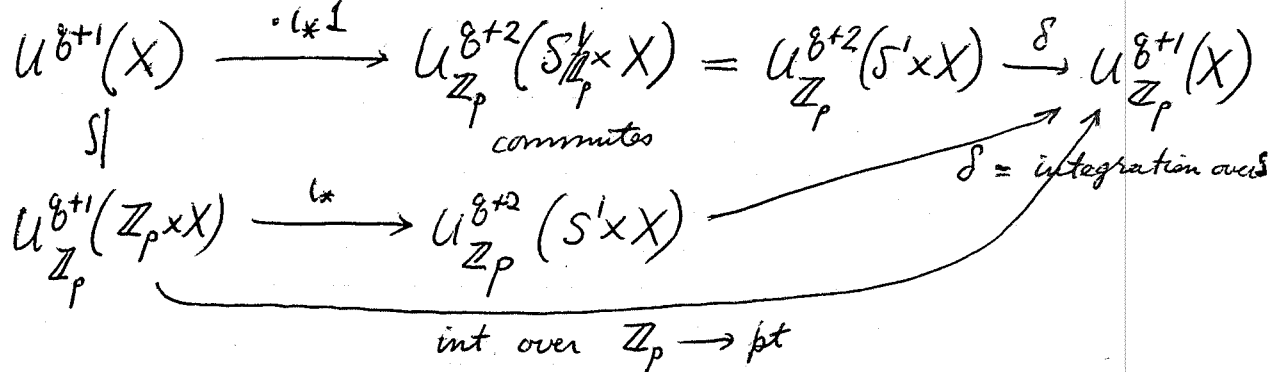 U^{q+1}(X) \xrightarrow{\cdot \iota_* 1} U^{q+2}_{\mathbb{Z}_p}(S^1 \times X) = U^{q+2}_{\mathbb{Z}_p}(S^1 \times X) \xrightarrow{\delta} U^{q+1}_{\mathbb{Z}_p}(X)
S|
commutes
δ = integration over S
U^{q+1}_{\mathbb{Z}_p}(\mathbb{Z}_p \times X) \xrightarrow{\iota_*} U^{q+2}_{\mathbb{Z}_p}(S^1 \times X)
int over \mathbb{Z}_p → pt